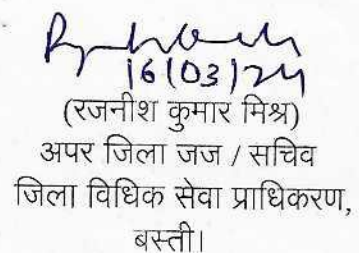 16/03/24
(रजनीश कुमार मिश्र)
अपर जिला जज / सचिव
जिला विधिक सेवा प्राधिकरण,
बस्ती।